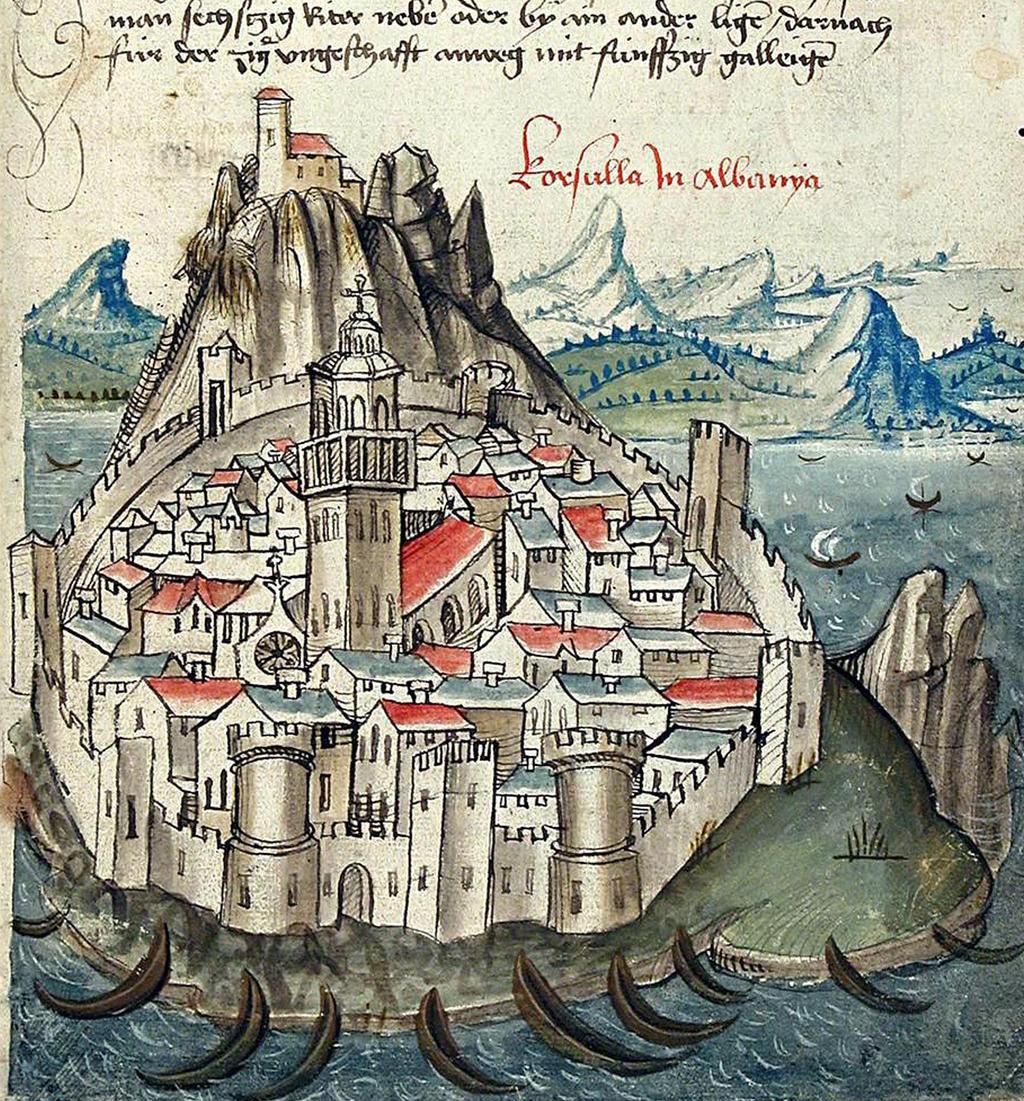 man sechszig Riter nebē oder by ain ander ligē / darnach
für der zig vngeschafft anweg mit fünffzig galleigē
Korsulla In Albanÿa